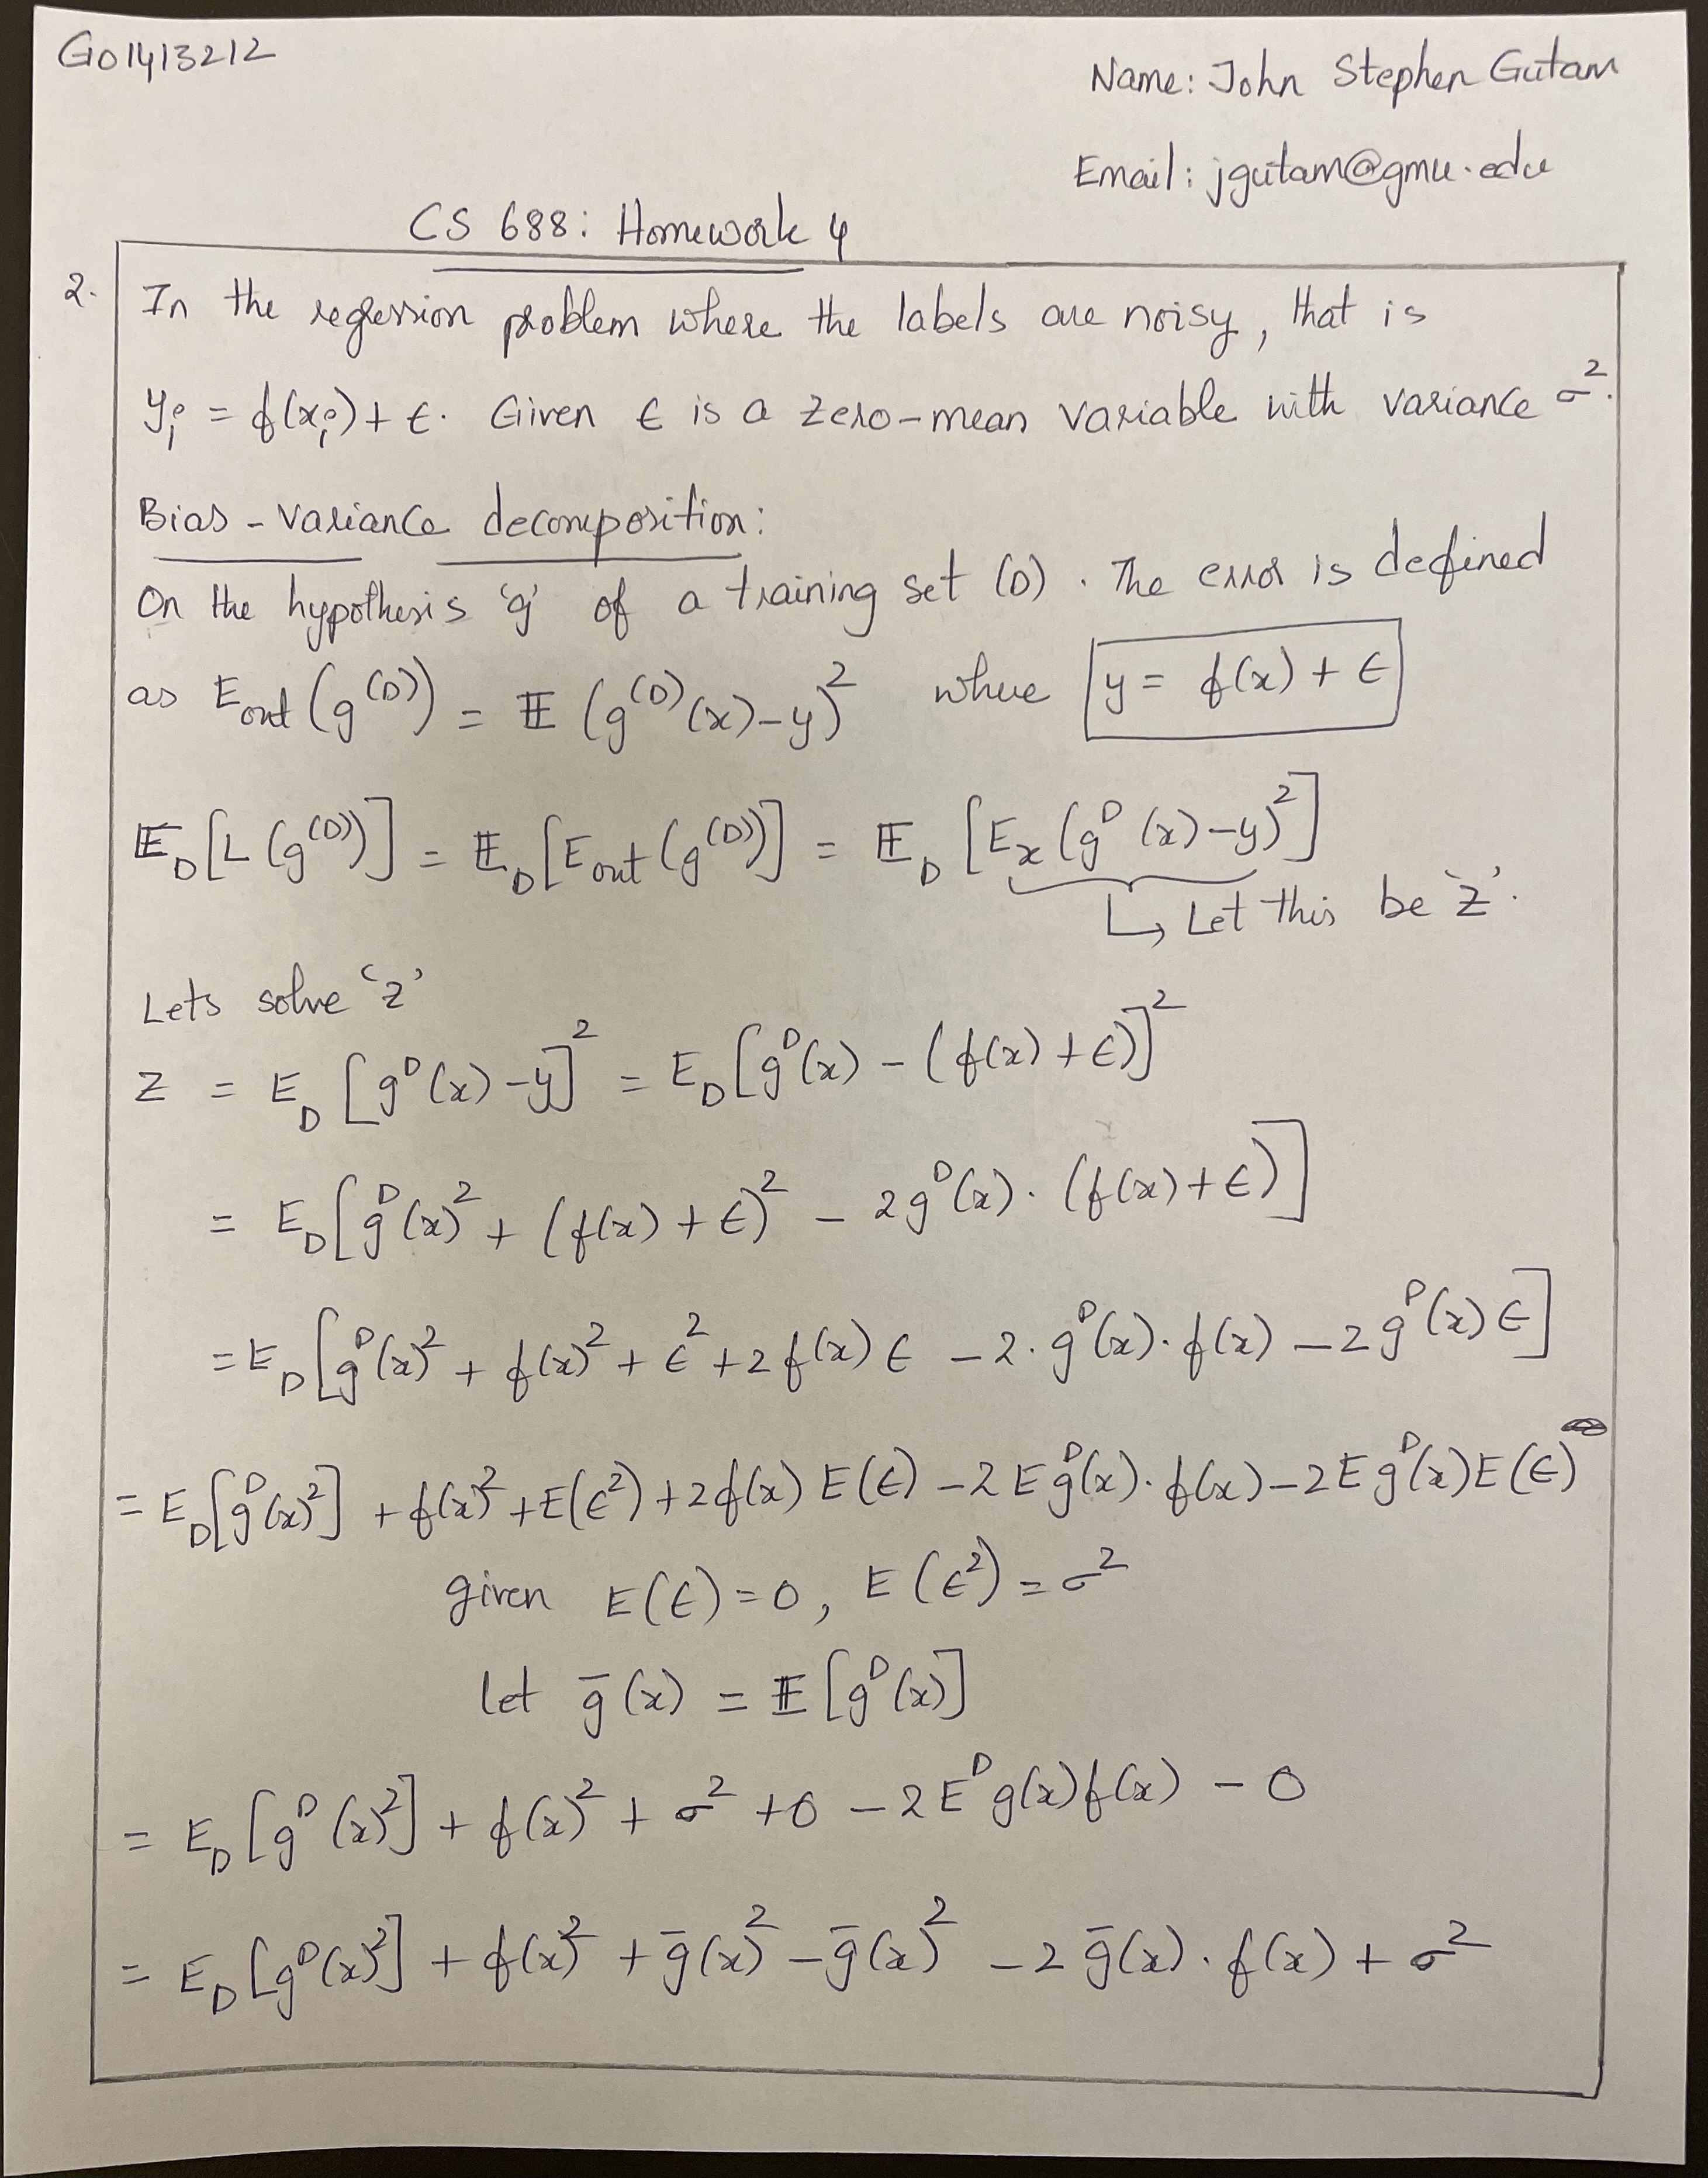 G01413212
Name: John Stephen Gutam
Email: jgutam@gmu.edu
CS 688: Homework 4
2. In the regression problem where the labels are noisy, that is
yᵢ = f(xᵢ) + ϵ. Given ϵ is a zero-mean variable with variance σ².
Bias-variance decomposition:
On the hypothesis 'g' of a training set (D). The error is defined
as E_out(g^(D)) = 𝔼 (g^(D)(x)-y)² where y = f(x) + ϵ
𝔼_D[L(g^(D))] = 𝔼_D[E_out(g^(D))] = 𝔼_D[E_x(g^D(x)-y)²]
↳ Let this be 'z'.
Lets solve 'z'
z = E_D[g^D(x)-y]² = E_D[g^D(x) - (f(x)+ϵ)]²
= E_D[g^D(x)² + (f(x)+ϵ)² - 2g^D(x)·(f(x)+ϵ)]
= E_D[g^D(x)² + f(x)² + ϵ² + 2f(x)ϵ - 2·g^D(x)·f(x) - 2g^D(x)ϵ]
= E_D[g^D(x)²] + f(x)² + E(ϵ²) + 2f(x)E(ϵ) - 2E g^D(x)·f(x) - 2E g^D(x)E(ϵ)
given E(ϵ)=0, E(ϵ²)=σ²
let ḡ(x) = 𝔼[g^D(x)]
= E_D[g^D(x)²] + f(x)² + σ² + 0 - 2E^D g(x)f(x) - 0
= E_D[g^D(x)²] + f(x)² + ḡ(x)² - ḡ(x)² - 2ḡ(x)·f(x) + σ²